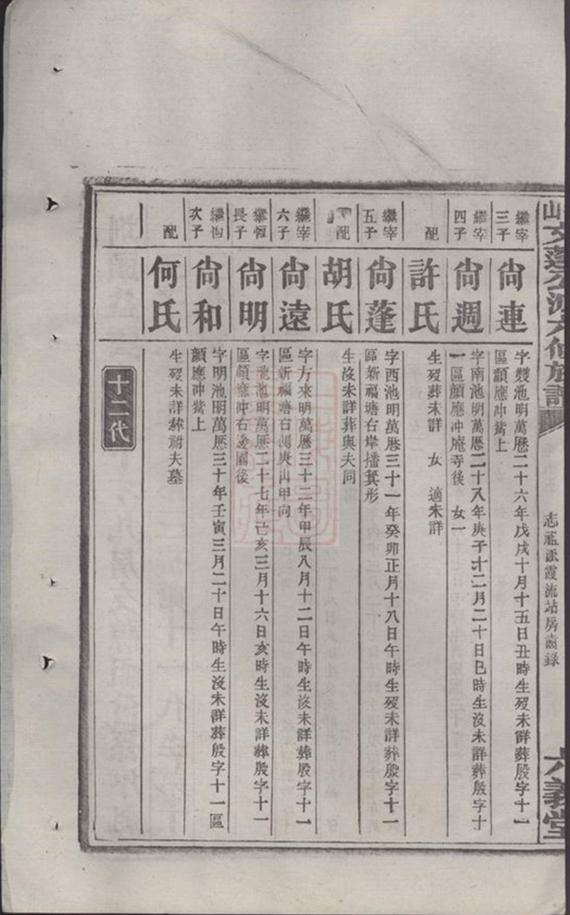 文蓬公派六修族譜
志藍派霞流站房齒錄
六義堂
繼宰三子
尙連
字雙池明萬曆二十六年戊戌十月十五日丑時生歿未詳葬殷字十一
區顧應冲嵩上
繼宰四子
尙週
字南池明萬曆二十八年庚子十二月二十日巳時生沒未詳葬殷字十
一區顧應冲庵寺後 女一
配
許氏
生歿葬未詳 女 適未詳
繼宰五子
尙蓬
字西池明萬曆三十一年癸卯正月十八日午時生歿未詳葬殷字十一
區新福塘右岸播箕形
配
胡氏
生沒未詳葬與夫同
繼宰六子
尙遠
字方來明萬曆三十二年甲辰八月十二日午時生歿未詳葬殷字十一
區新福塘右側庚山甲向
繼恒長子
尙明
字池明萬曆二十七年己亥三月十六日亥時生沒未詳葬殷字十一
區顧應冲右園後
繼恒次子
尙和
字明池明萬曆三十年壬寅三月二十日午時生沒未詳葬殷字十一區
顧應冲嵩上
配
何氏
生歿未詳葬祔夫墓
十二代